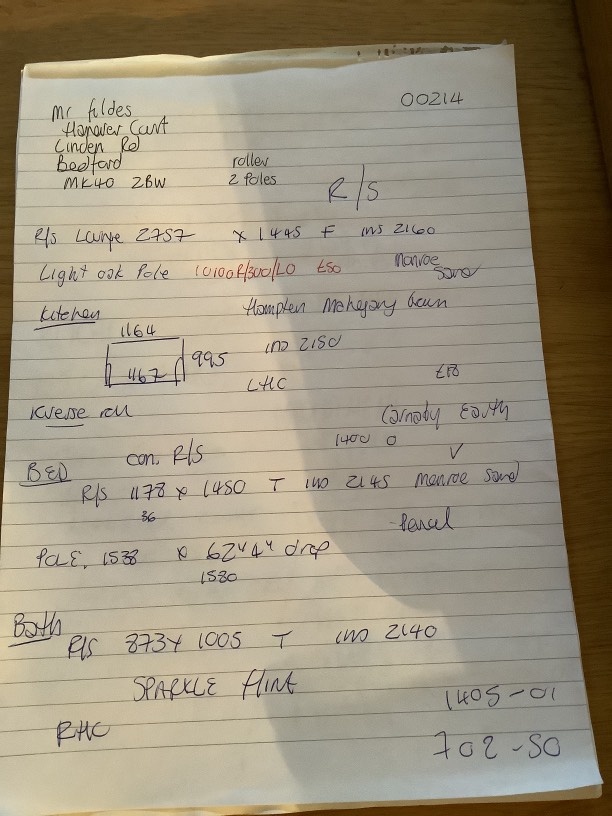 00214
Mr Fildes
Hanover Court
Linden Rd
Bedford
MK40 2BW
roller
2 Poles
R/S
R/s Lounge 2757 x 1445 F ins 2160
Light oak Pole 10100R/300/LO £50 Monroe Sand
Kitchen
Hampton Mahogany
1164
995
1167
ins 2150
LHC
Reverse roll
Carnaby Earth
1400 0
V
BED con. R/S
R/s 1178 x 1450 T ins 2145 Monroe Sand
36
Pencil
POLE. 1538 x 62" 44" drop
1580
Bath
R/s 873 x 1005 T ins 2140
SPARKLE FLINT
RHC
1405-01
702-50